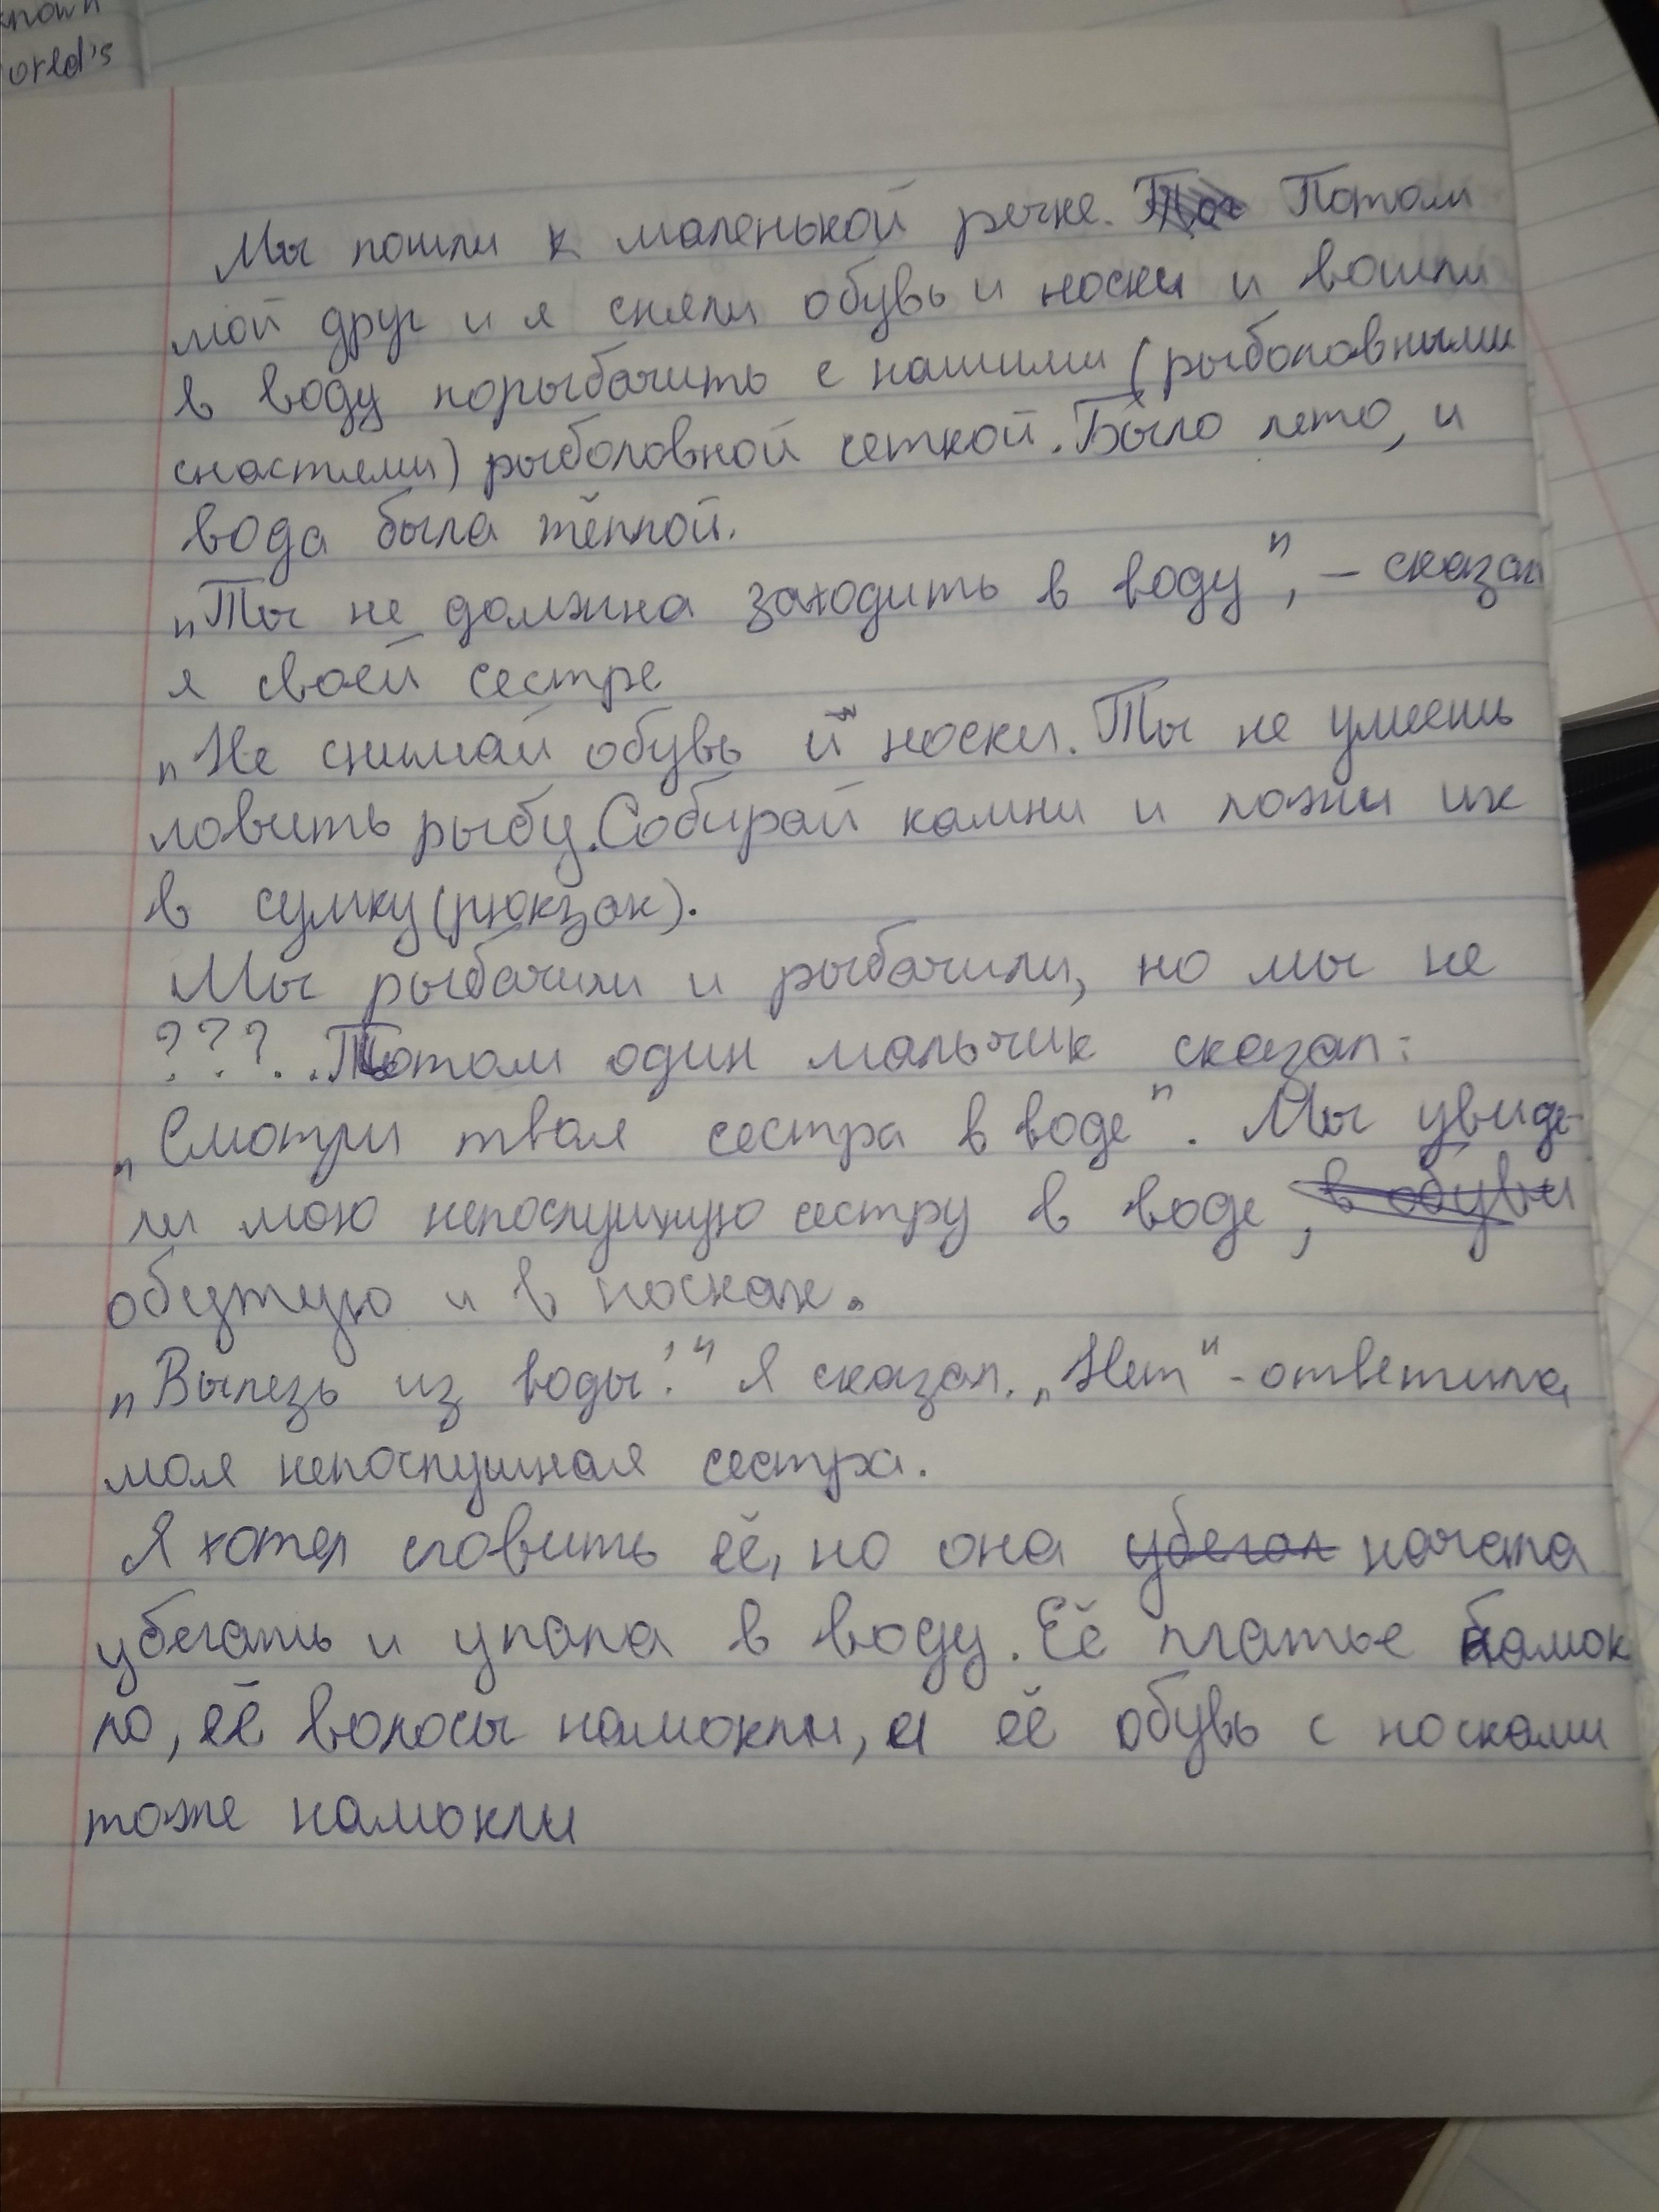 known
orld's
Мы пошли к маленькой речке. Потом
мой друг и я сняли обувь и носки и вошли
в воду порыбачить с нашими (рыболовными
снастями) рыболовной сеткой. Было лето, и
вода была тёплой.
„Ты не должна заходить в воду", – сказал
я своей сестре
„Не снимай обувь и носки. Ты не умеешь
ловить рыбу. Собирай камни и ложи их
в сумку (рюкзак).
Мы рыбачили и рыбачили, но мы не
???. Потом один мальчик сказал:
„Смотри твоя сестра в воде". Мы увиде-
ли мою непослушную сестру в воде, в обуви
обутую и в носках.
„Вылезь из воды!" Я сказал. „Нет" - ответила
моя непослушная сестра.
Я хотел словить её, но она убегал начала
убегать и упала в воду. Её платье намок
ло, её волосы намокли, и её обувь с носками
тоже намокли